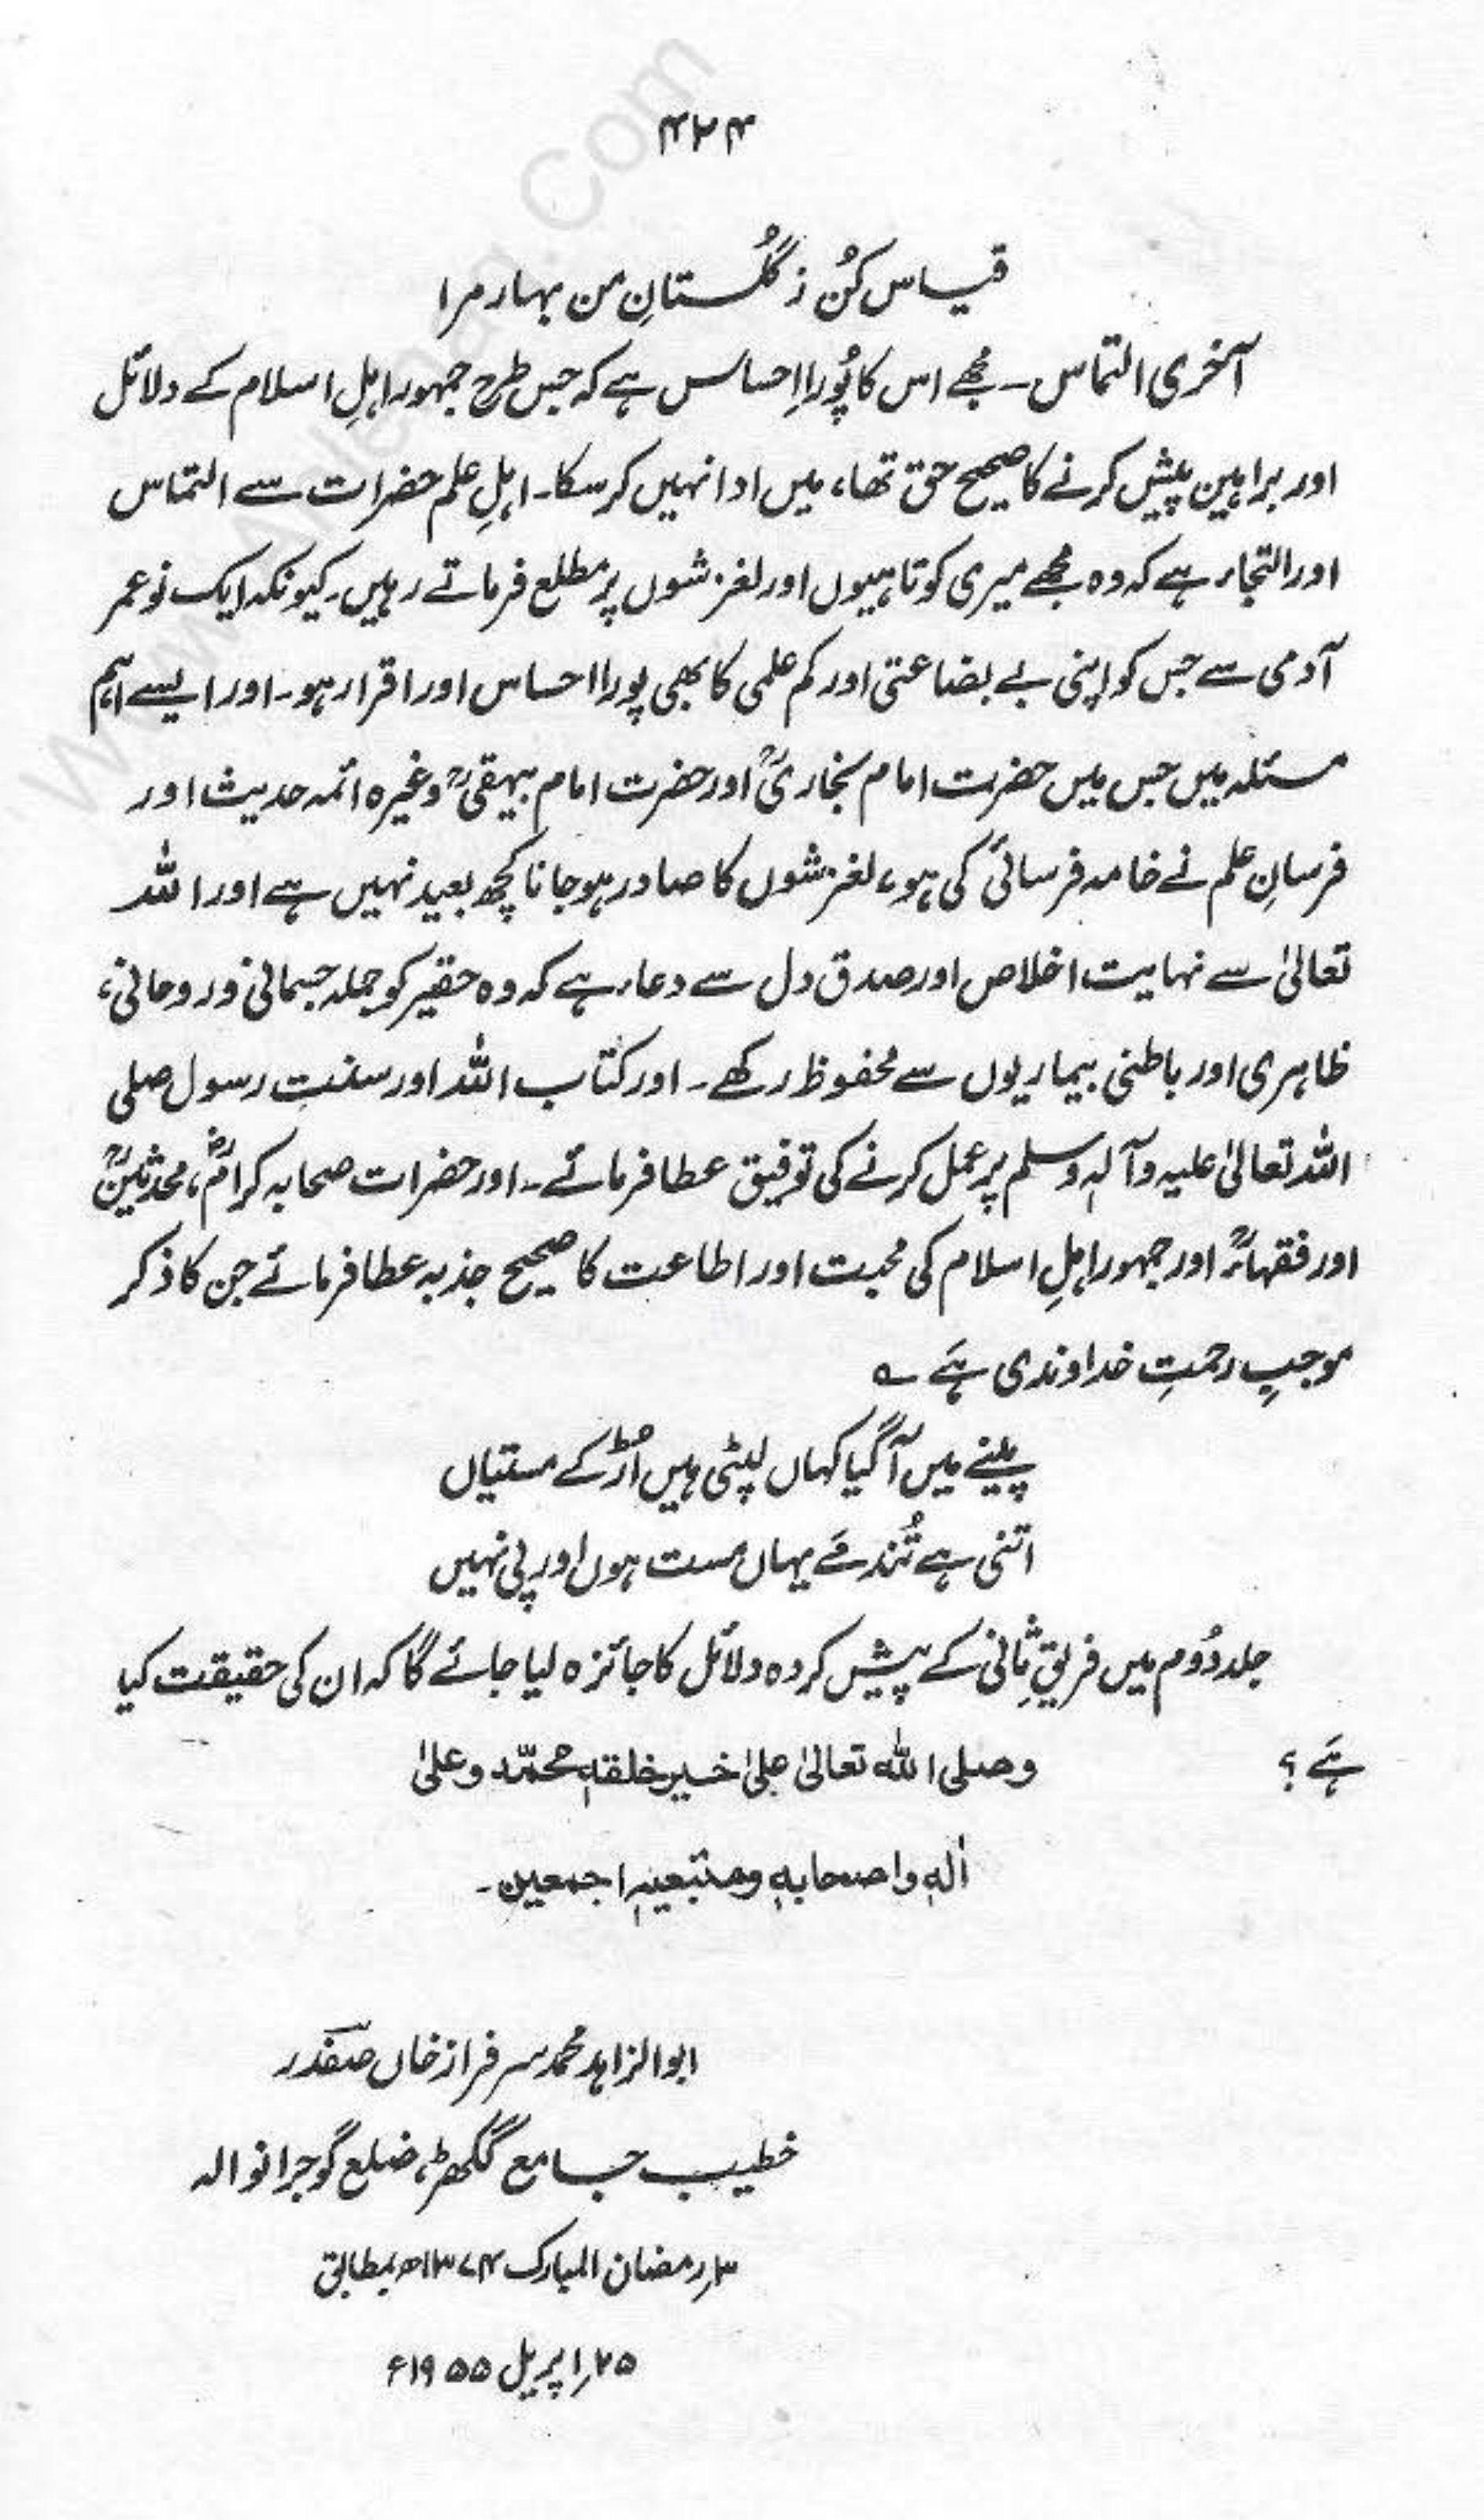 ۴۲۴
قیاس کُن ز گلُستانِ من بہار مرا
آخری التماس۔ مجھے اس کا پُورا احساس ہے کہ جس طرح جمہور اہلِ اسلام کے دلائل
اور براہین پیش کرنے کا صحیح حق تھا، میں ادا نہیں کر سکا۔ اہلِ علم حضرات سے التماس
اور التجاء ہے کہ وہ مجھے میری کوتاہیوں اور لغزشوں پر مطلع فرماتے رہیں۔ کیونکہ ایک نوعمر
آدمی سے جس کو اپنی بے بضاعتی اور کم علمی کا بھی پورا احساس اور اقرار ہو۔ اور ایسے اہم
مسئلہ میں جس میں حضرت امام بخاریؒ اور حضرت امام بیہقیؒ وغیرہ ائمہ حدیث اور
فرسانِ علم نے خامہ فرسائی کی ہو، لغزشوں کا صادر ہو جانا کچھ بعید نہیں ہے اور اللہ
تعالیٰ سے نہایت اخلاص اور صدق دل سے دعاء ہے کہ وہ حقیر کو جملہ جسمانی و روحانی،
ظاہری اور باطنی بیماریوں سے محفوظ رکھے۔ اور کتاب اللہ اور سنتِ رسول صلی
اللہ تعالیٰ علیہ وآلہٖ وسلم پر عمل کرنے کی توفیق عطا فرمائے۔ اور حضرات صحابہ کرامؓ، محدثینؒ
اور فقہاءؒ اور جمہور اہلِ اسلام کی محبت اور اطاعت کا صحیح جذبہ عطا فرمائے جن کا ذکر
موجبِ رحمتِ خداوندی ہَے ؎
پینے میں آ گیا کہاں لپٹی ہیں اُڑ کے مستیاں
اتنی ہے تُند مَے یہاں مست ہوں اور پی نہیں
جلد دُوم میں فریقِ ثانی کے پیش کردہ دلائل کا جائزہ لیا جائے گا کہ ان کی حقیقت کیا
ہَے ؟ وصلی اللہ تعالیٰ علیٰ خیر خلقہٖ محمّد وعلیٰ
اٰلہٖ واصحابہٖ ومتبعیہٖ اجمعین۔
ابوالزاہد محمد سرفراز خاں صفدر
خطیب جامع گکھڑ، ضلع گوجرانوالہ
۳؍رمضان المبارک ۱۳۷۴ھ بمطابق
۲۵؍اپریل ۱۹۵۵ء